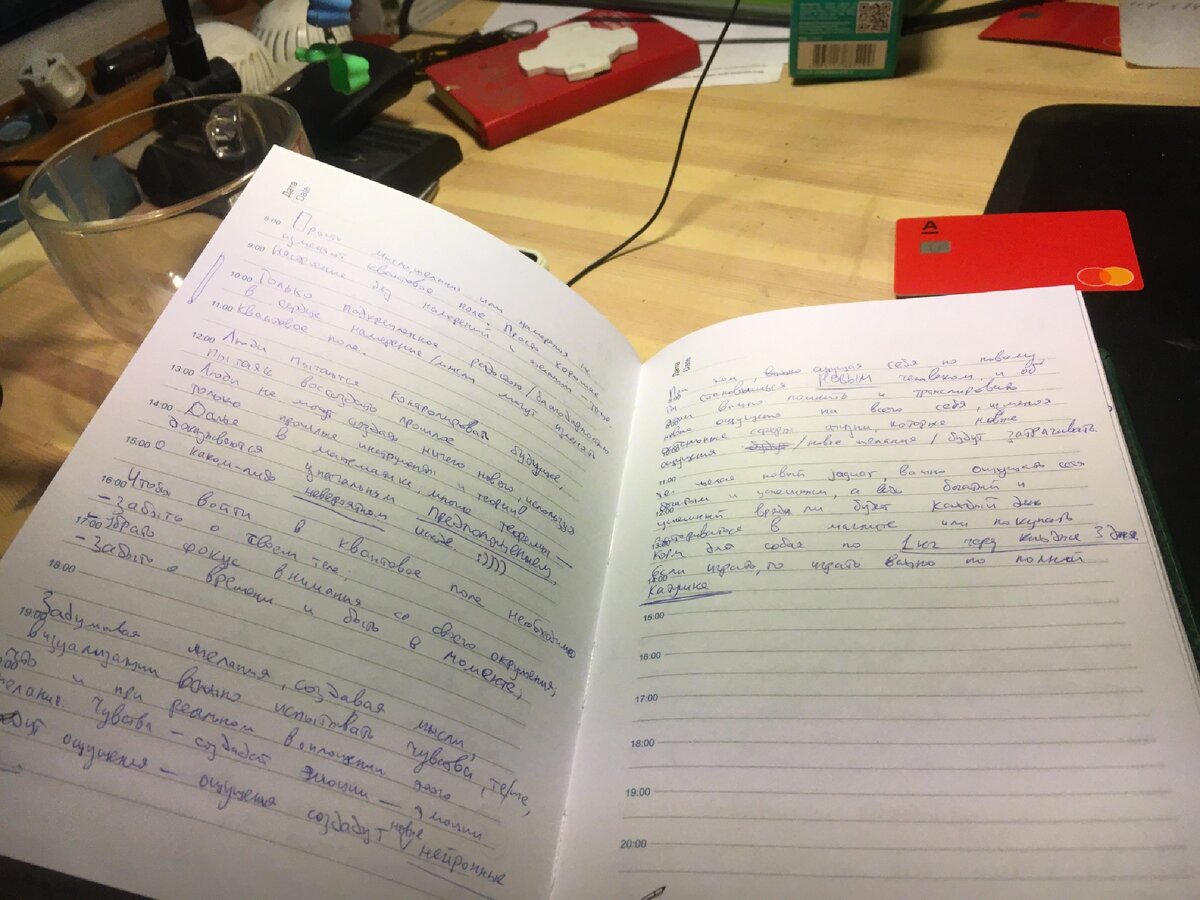 Дата
Date
8:00 Просто мысли, желания или намерения не
изменяют квантовое поле. Просто хорошее
9:00 настроение без намерений и желаний тоже
10:00 Только подкрепленное радостью/благодарностью
в сердце намерение/мысл могут изменять
11:00 квантовое поле.
12:00 Люди пытаются контролировать будущее,
пытаяс воссоздать прошлое
13:00 Люди не могут создать ничего нового, используя
только прошлые инструменты и теории
14:00 Даже в математике, многие теоремы
докузываются изначальным предположением,
15:00 о каком-либо невероятном исходе. :)))))
16:00 Чтобы войти в квантовое поле необходимо
- Забыть о твоем теле;
17:00 - Убрать фокус внимания со своего окружения;
- Забыть о времени и быть в моменте;
18:00
Задумовая желания, создавая мысли,
19:00 визуализации важно испытывать чувства, те/же,
что и при реальном воплощении этого
желания. Чувства - создадут эмоции - эмоции
ощущения - ощущения создадут новые нейронные
Дата
Date
При этом, важно ощущая себя по новому
становишься новым человеком и об
этом важно помнить и транслировать
новые ощущения на всего себя, изменяя
сферы жизни, которые новые
ощущения /новые желания/ будут затрачивать
11:00 желая новый заднат, важно ощущать себя
богатым и успешным, а ведь богатый и
12:00 успешный вряд ли будет каждый день
в магните или покупать
13:00 корм для собак по 1 кг каждые 3 дня
Если играть, то играть важно по полной
14:00
катушке
15:00
16:00
17:00
18:00
19:00
20:00